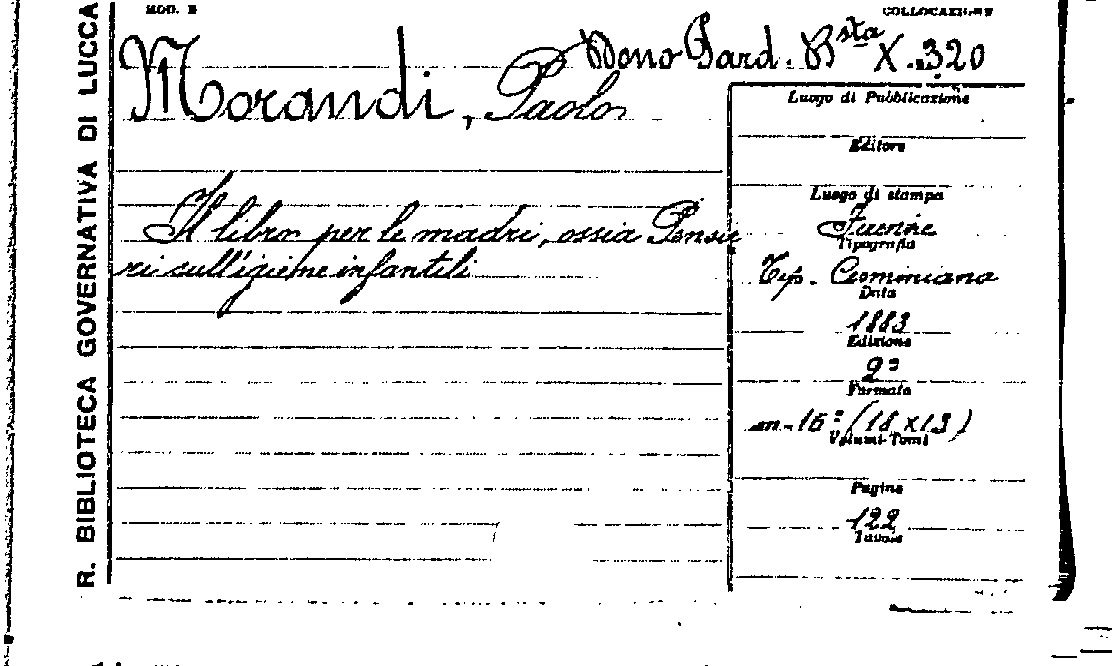 MOD. B
COLLOCAZIONE
R. BIBLIOTECA GOVERNATIVA DI LUCCA
Dono Pard. Bsta X. 320
Morandi, Paolo
Il libro per le madri, ossia Pensie
ri sull'igiene infantili
Luogo di Pubblicazione
Editore
Luogo di stampa
Firenze
Tipografia
Tip. Cominiana
Data
1883
Edizione
2ª
Formato
in-16° (18 x 13)
Volumi-Tomi
Pagine
122
Tavole